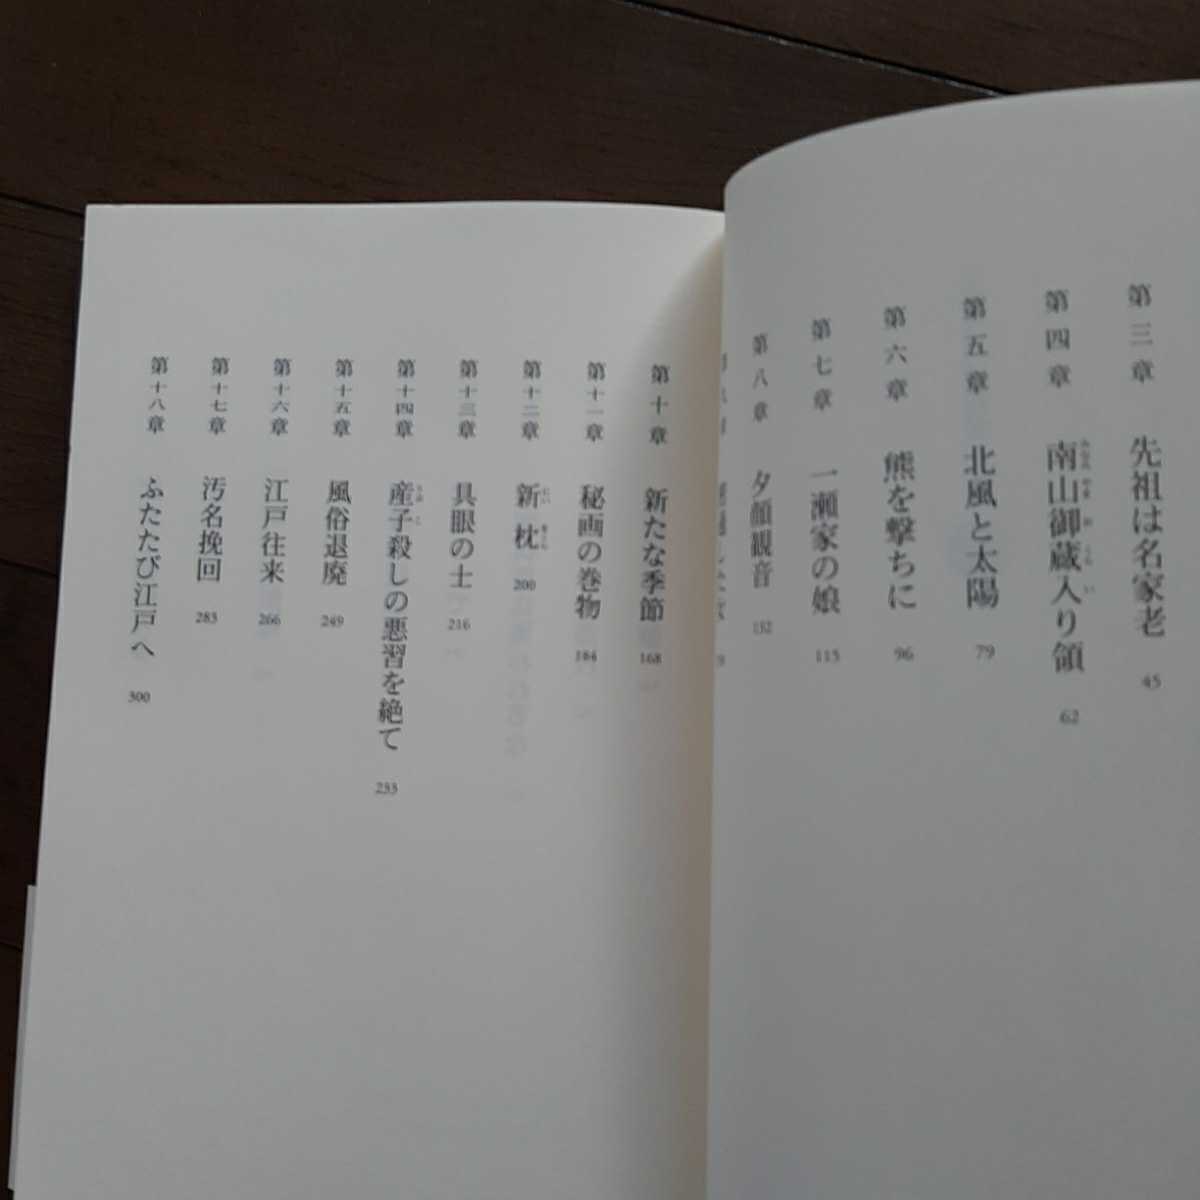 第三章 先祖は名家老 45
第四章 南山御蔵入り領 62
第五章 北風と太陽 79
第六章 熊を撃ちに 96
第七章 一瀬家の娘 115
第八章 夕顔観音 132
第十章 新たな季節 168
第十一章 秘画の巻物 184
第十二章 新枕 200
第十三章 具眼の士 216
第十四章 産子殺しの悪習を絶て 233
第十五章 風俗退廃 249
第十六章 江戸往来 266
第十七章 汚名挽回 283
第十八章 ふたたび江戸へ 300